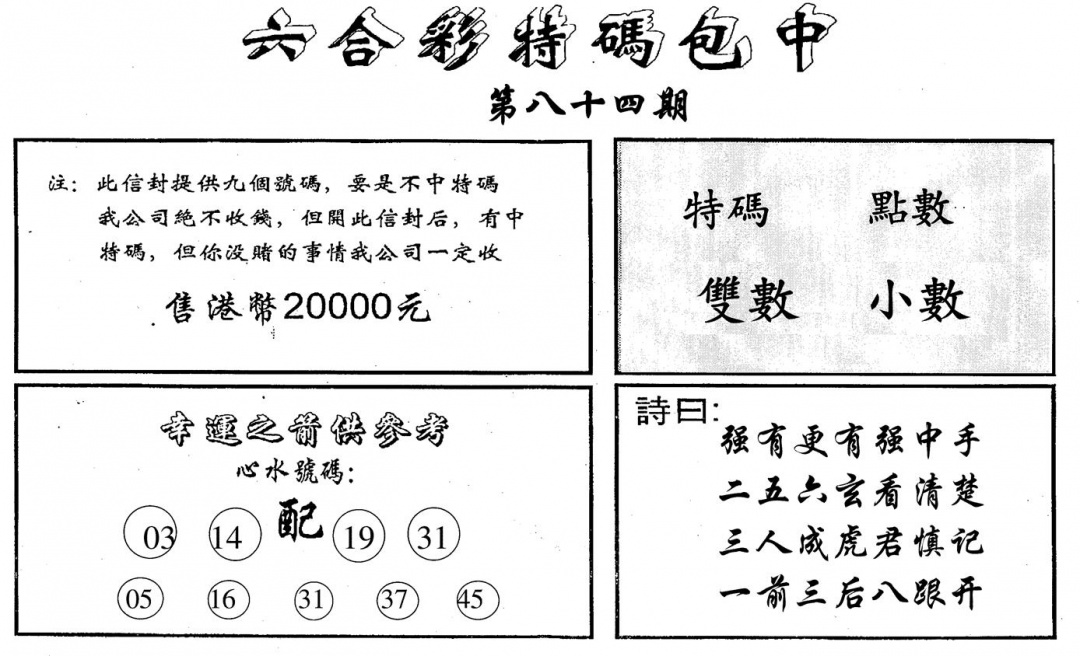 六合彩特碼包中
第八十四期
注：此信封提供九個號碼，要是不中特碼
我公司絕不收錢，但開此信封后，有中
特碼，但你没賭的事情我公司一定收
售港幣20000元
特碼 點數
雙數 小數
幸運之箭供參考
心水號碼：
03 14 配 19 31
05 16 31 37 45
詩曰：
强有更有强中手
二五六玄看清楚
三人成虎君慎记
一前三后八跟开